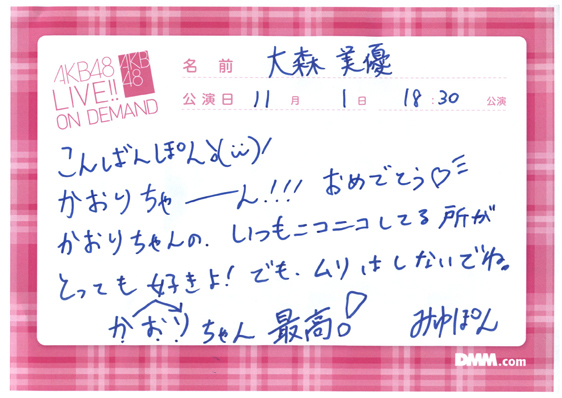 AKB48
LIVE!!
ON DEMAND
AKB
48
名 前 大森 美優
公演日 11 月 1 日 18:30 公演
こんばんぽん(ü)/
かおりちゃーーん!!! おめでとう♡
かおりちゃんの、いつもニコニコしてる所が
とっても 好きよ! でも、ムリはしないでね。
かおりちゃん 最高! みゆぽん
DMM.com